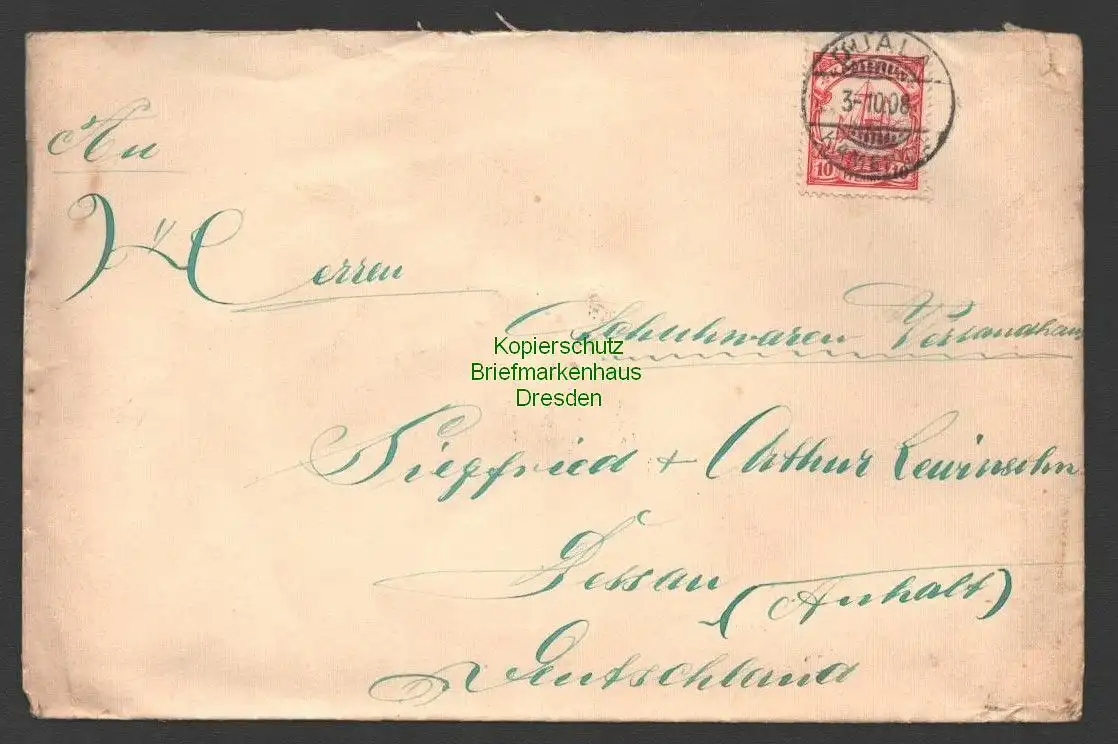 DUALA
3-10.08
KAMERUN
10 10
An
Herren
Schuhwaren Versandhaus
Kopierschutz
Briefmarkenhaus
Dresden
Siegfried + Arthur Lewinsohn
Dessau (Anhalt)
Deutschland